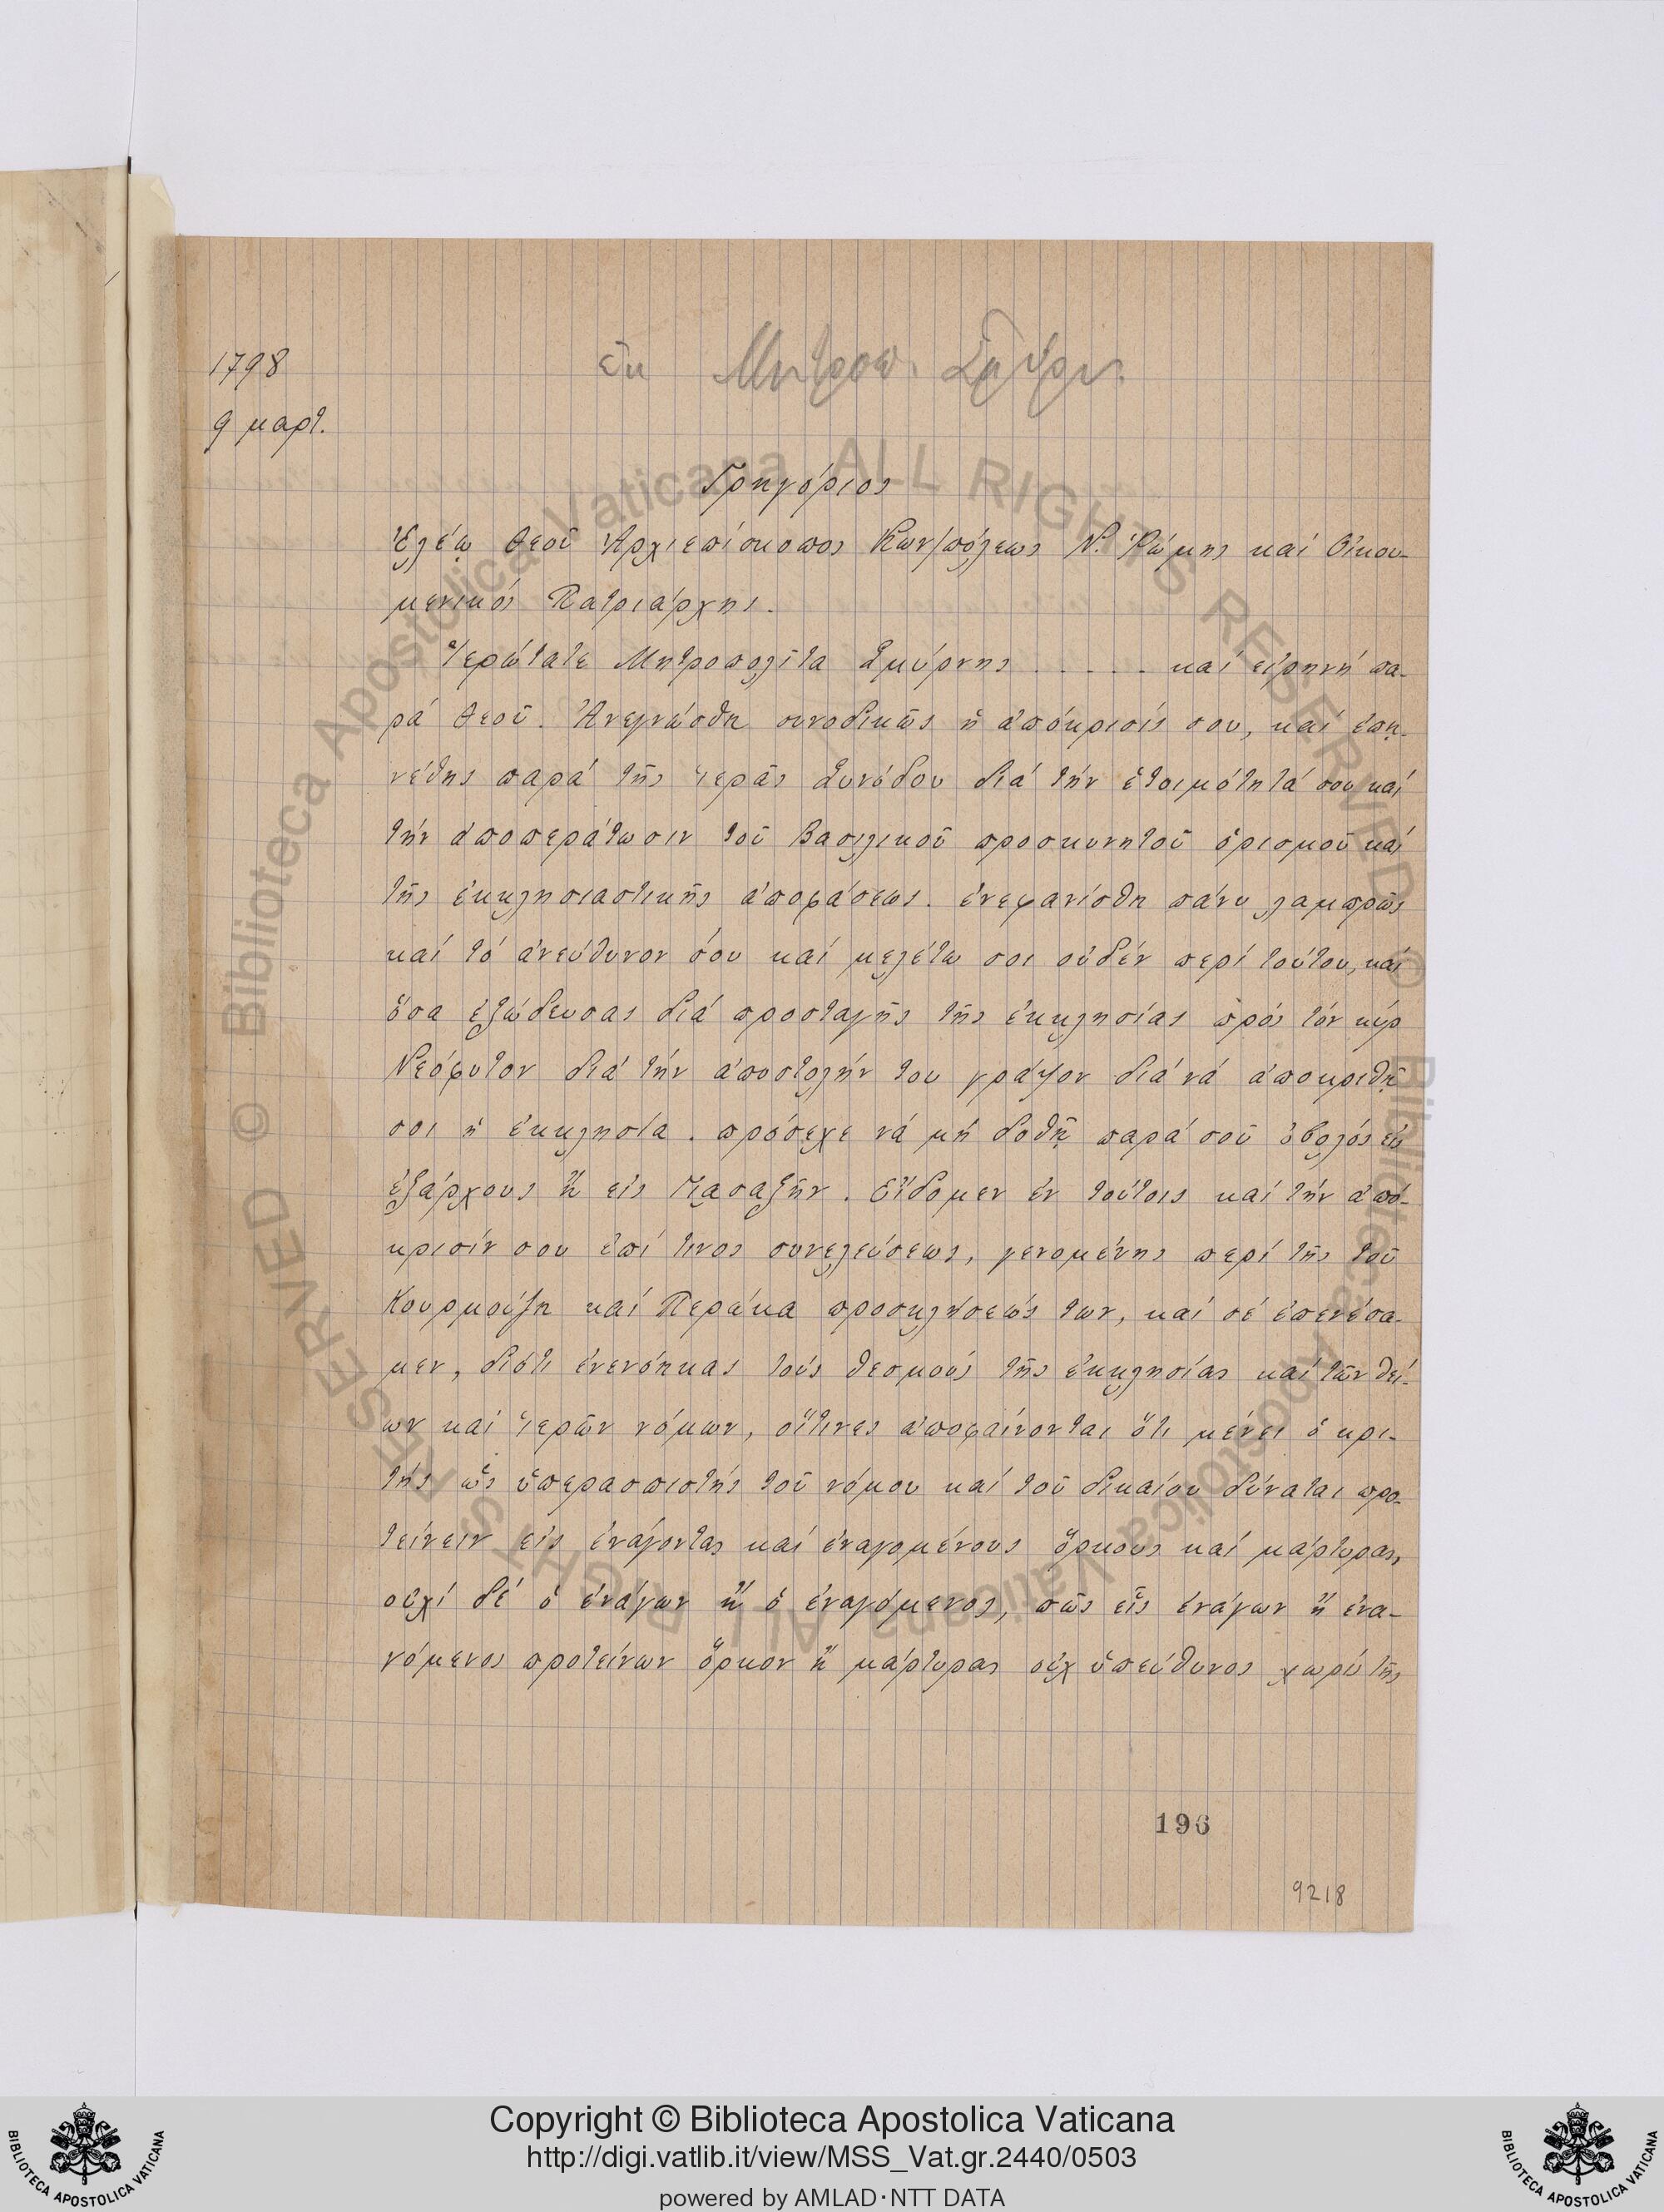 1798
9 μαρτ.
ἐκ Μητροπ. Σμύρν.
Γρηγόριος
Ἐλέῳ Θεοῦ Ἀρχιεπίσκοπος Κων/πόλεως Ν. Ῥώμης καί Οἰκου-
μενικός Πατριάρχης.
Ἱερώτατε Μητροπολῖτα Σμύρνης . . . . . καί εἰρήνή πα-
ρά Θεοῦ. Ἀνεγνώσθη συνοδικῶς ἡ ἀπόκρισίς σου, καί ἐπη-
νέθης παρά τῆς ἱερᾶς Συνόδου διά τήν ἑτοιμότητά σου καί
τήν ἀποπεράτωσιν τοῦ Βασιλικοῦ προσκυνητοῦ ὁρισμοῦ καί
τῆς ἐκκλησιαστικῆς ἀποφάσεως. ἐνεφανίσθη πάνυ λαμπρῶς
καί τό ἀνεύθυνον σου καί μελέτω σοι οὐδέν περί τούτου, καί
ὅσα ἐξώδευσας διά προσταγῆς τῆς ἐκκλησίας πρός τόν κύρ
Νεόφυτον διά τήν ἀποστολήν του γράψον διά νά ἀποκριθῇ
σοι ἡ ἐκκλησία. πρόσεχε νά μή δοθῇ παρά σοῦ ὀβολός εἰς
ἐξάρχους ἤ εἰς . Εἴδομεν ἐν τούτοις καί τήν ἀπό-
κρισίν σου ἐπί τινος συνελεύσεως, γενομένης περί τῆς τοῦ
Κουρμούζη καί Περάκα προσκλήσεώς των, καί σέ ἐπενέσα-
μεν, διότι ἐνενόηκας τούς θεσμούς τῆς ἐκκλησίας καί τῶν θεί-
ων καί ἱερῶν νόμων, οἵτινες ἀποφαίνονται ὅτι μένει ὁ κρι-
τής ὡς ὑπερασπιστής τοῦ νόμου καί τοῦ δικαίου δύναται προ-
τείνειν εἰς ἐνάγοντας καί ἐναγομένους ὅρκους καί μάρτυρας,
οὐχί δέ ὁ ἐνάγων ἤ ὁ ἐναγόμενος, πῶς εἷς ἐνάγων ἤ ἐνα-
γόμενος προτείνων ὅρκον ἤ μάρτυρας οὐχ ὑπεύθυνος χωρίς τῆς
196
9218
© Biblioteca Apostolica Vaticana ALL RIGHTS RESERVED
© Biblioteca Apostolica Vaticana ALL RIGHTS RESERVED
Copyright © Biblioteca Apostolica Vaticana
http://digi.vatlib.it/view/MSS_Vat.gr.2440/0503
powered by AMLAD·NTT DATA
BIBLIOTECA APOSTOLICA VATICANA
BIBLIOTECA APOSTOLICA VATICANA